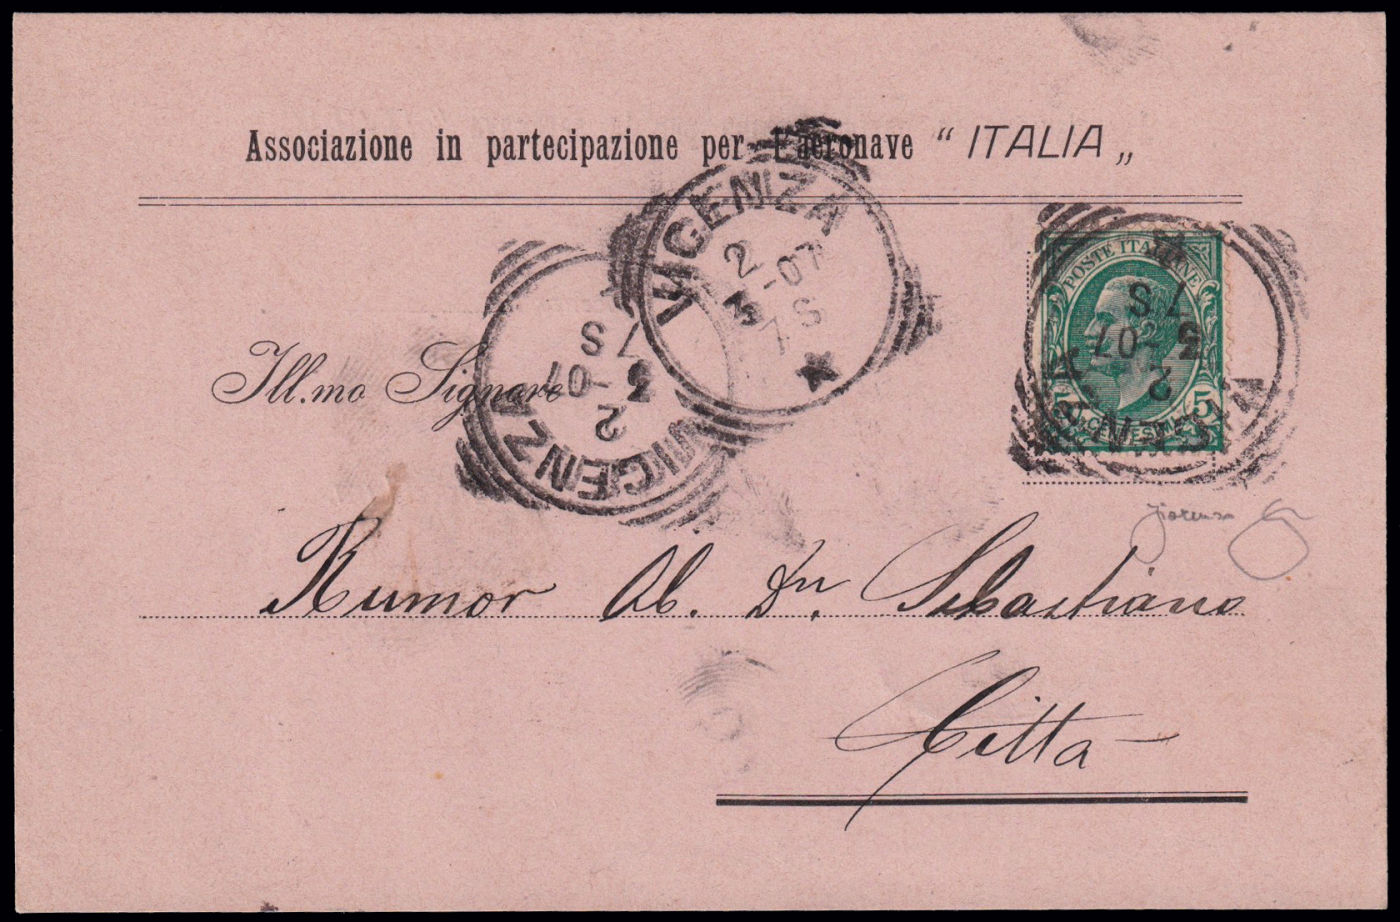 Associazione in partecipazione per l'aeronave "ITALIA„
VICENZA
2
3-07
7S
VICENZA
2
3-07
7S
VICENZA
2
3-07
7S
POSTE ITALIANE
5
CENTESIMI
5
Ill.mo Signore
Fiorenzo
Rumor Ab. Dn. Sebastiano
Città